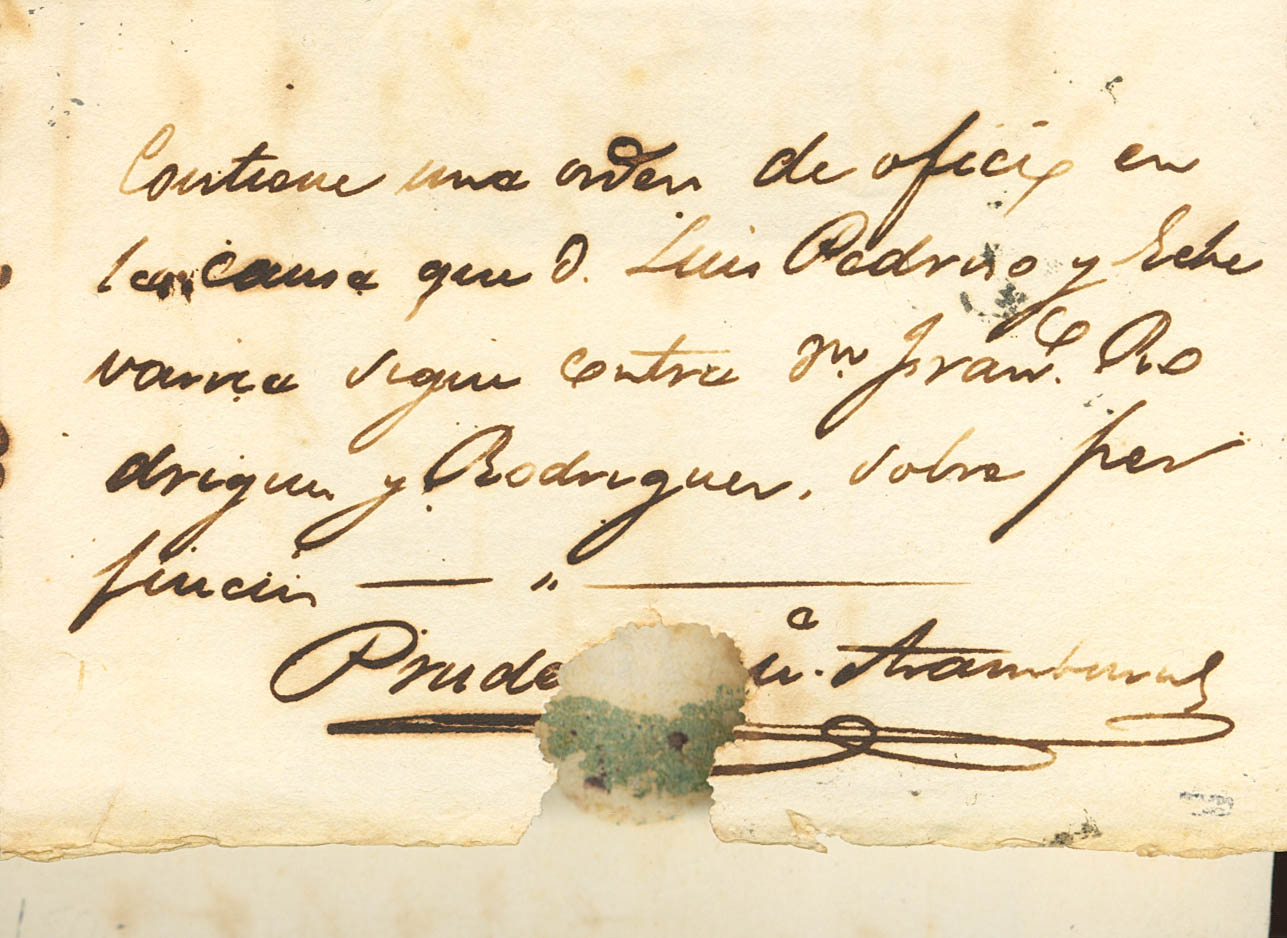 Contiene una orden de oficio en
la causa que D. Luis Pedroso y Eche
varria sigue contra Dn. Franco. Ro
driguez y Rodriguez, sobre per
 — " —
Prude Aramburu